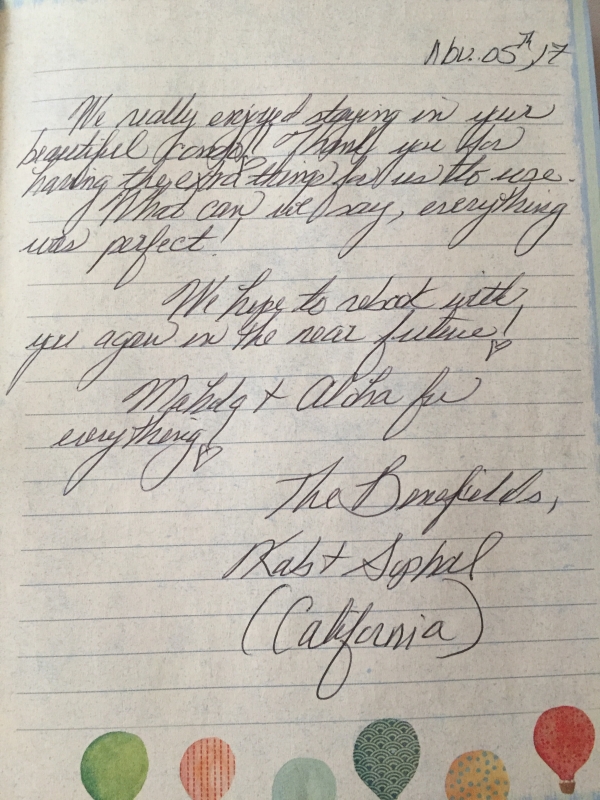 Nov. 05th, 17
We really enjoyed staying in your
beautiful condo! Thank you for
having the extra things for us to use.
What can we say, everything
was perfect!
We hope to rebook with
you again in the near future!
Mahalo + Aloha for
everything!
The Benefields,
+ Sophal
(California)